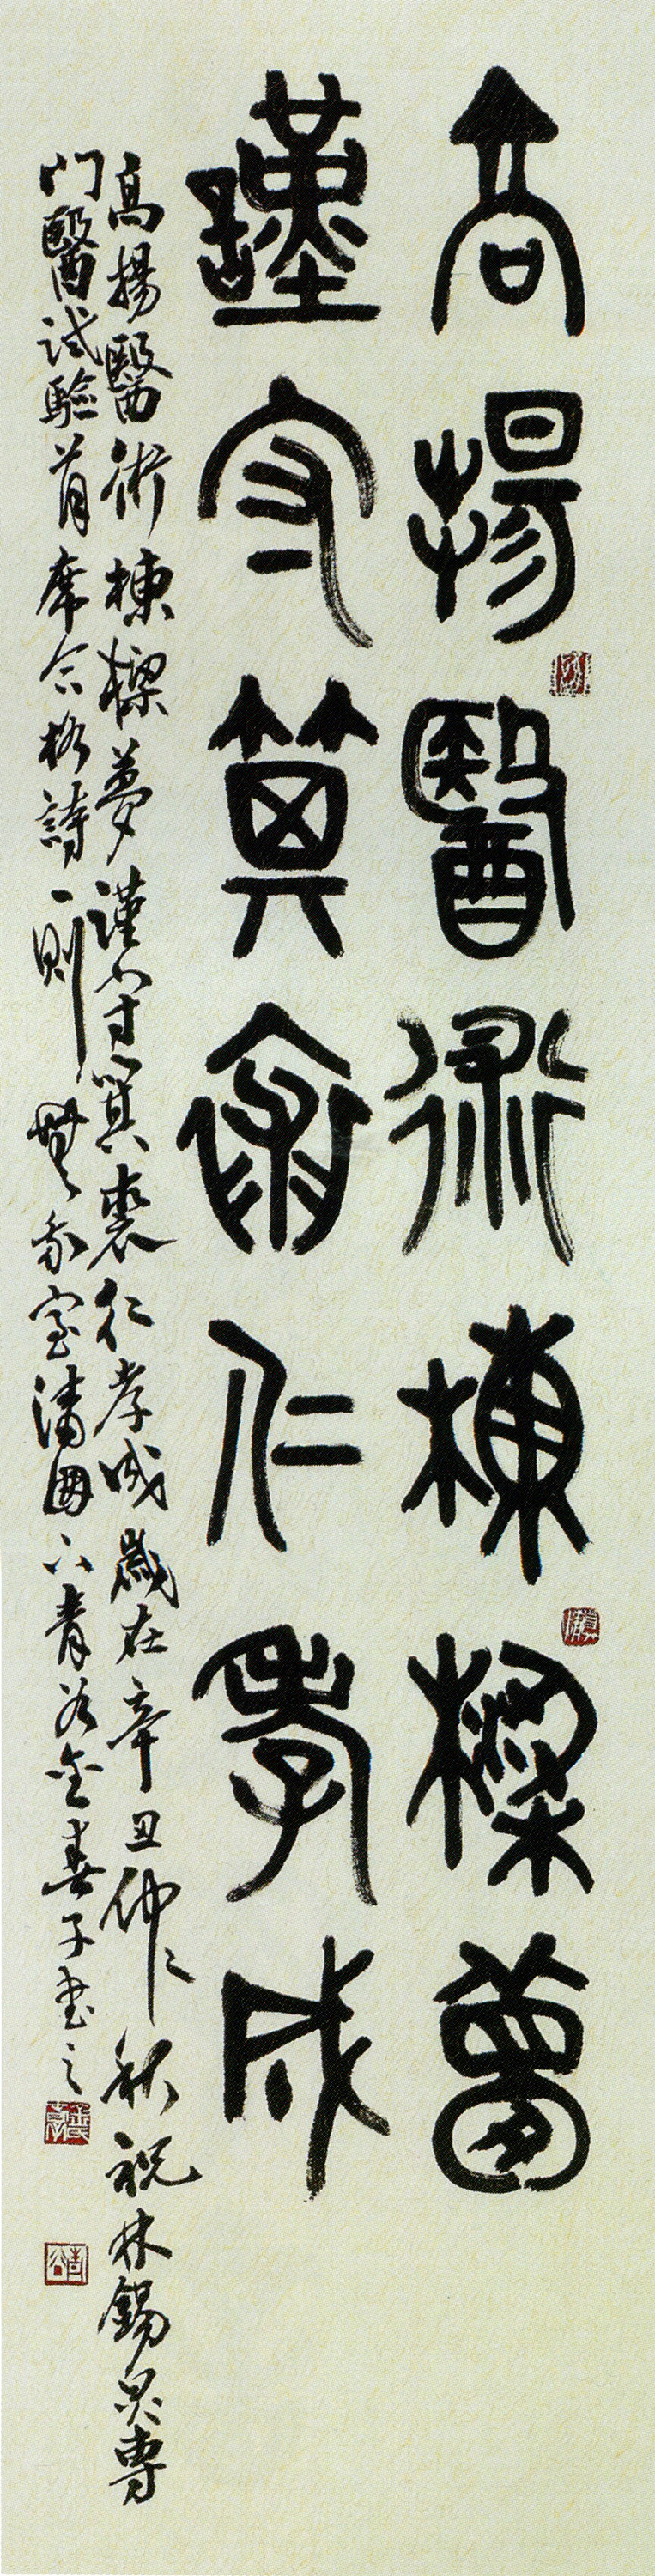 高揚醫術棟樑夢
謹守箕裘仁孝成
高揚醫術棟樑夢謹守箕裘仁孝成歲在辛丑仲秋祝林錫泉專
門醫試驗首席合格詩一則無我室潘國六青谷金春子書之